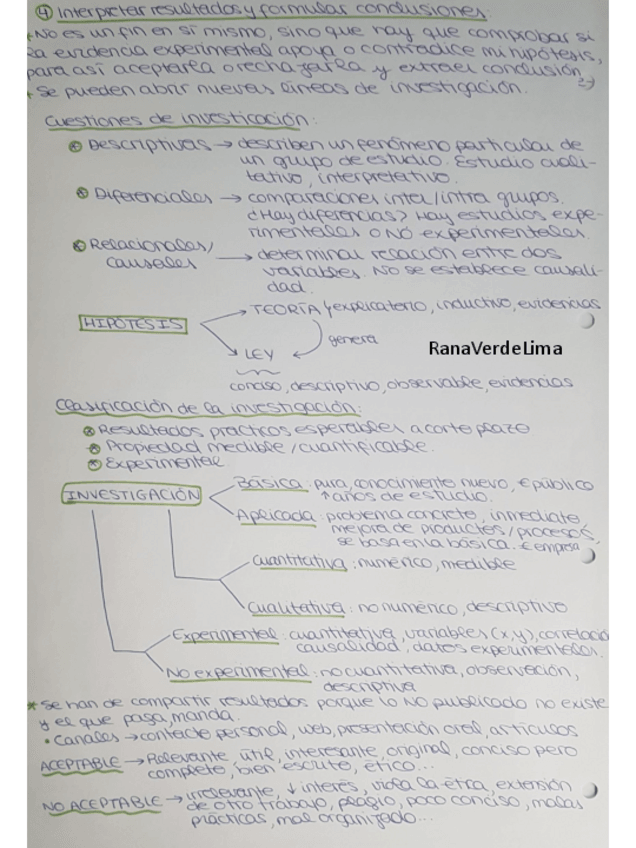 4 Interpretar resultados y formular conclusiones:
* No es un fin en sí mismo, sino que hay que comprobar si
la evidencia experimental apoya o contradice mi hipótesis,
para así aceptarla o rechazarla y extraer conclusión
* Se pueden abrir nuevas líneas de investigación.
Cuestiones de investigación:
* Descriptivas → describen un fenómeno particular de
un grupo de estudio. Estudio cuali-
tativo, interpretativo.
* Diferenciales → comparaciones inter/intra grupos.
¿Hay diferencias? Hay estudios expe-
rimentales o NO experimentales.
* Relacionales/ → determinar relación entre dos
causales variables. No se establece causali-
dad.
TEORÍA y explicatorio, inductivo, evidencias
HIPÓTESIS
genera
RanaVerdeLima
LEY
conciso, descriptivo, observable, evidencias
Clasificación de la investigación:
* Resultados prácticos esperables a corto plazo
* Propiedad medible/cuantificable.
* Experimental
Básica: pura, conocimiento nuevo, € público
INVESTIGACIÓN
↑ años de estudio.
Aplicada: problema concreto, inmediato,
mejora de productos/procesos,
se basa en la básica. € empresa
Cuantitativa: numérico, medible
Cualitativa: no numérico, descriptivo
Experimental: cuantitativa, variables (x,y), correlació
causalidad, datos experimentales.
No experimental: no cuantitativa, observación,
descriptiva
* Se han de compartir resultados porque lo NO publicado no existe
y el que pasa, manda.
• Canales → contacto personal, web, presentación oral, artículos
ACEPTABLE → Relevante, útil, interesante, original, conciso pero
completo, bien escrito, ético...
NO ACEPTABLE → irrelevante, ↓ interés, viola la ética, extensión
de otro trabajo, plagio, poco conciso, malas
prácticas, mal organizado...